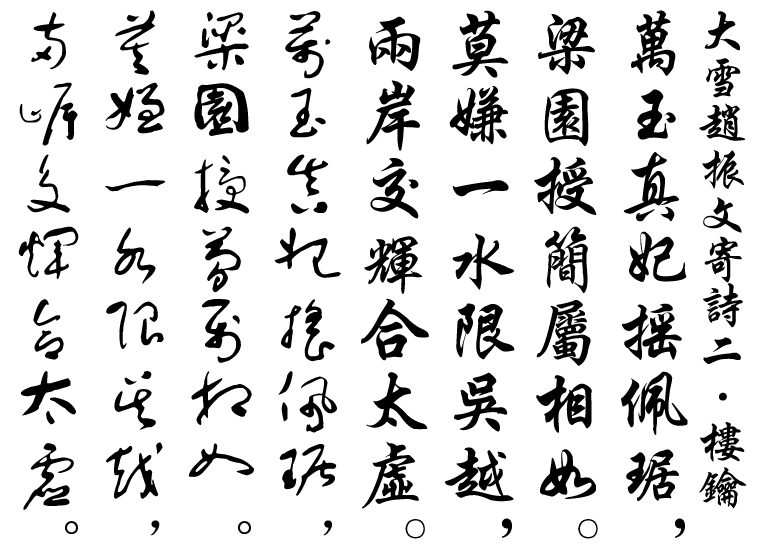 大雪趙振文寄詩二·樓鑰
萬玉真妃搖佩琚，
梁園授簡屬相如。
莫嫌一水限吳越，
兩岸交輝合太虛。
萬玉真妃搖佩琚，
梁園授簡屬相如。
莫嫌一水限吳越，
兩岸交輝合太虛。